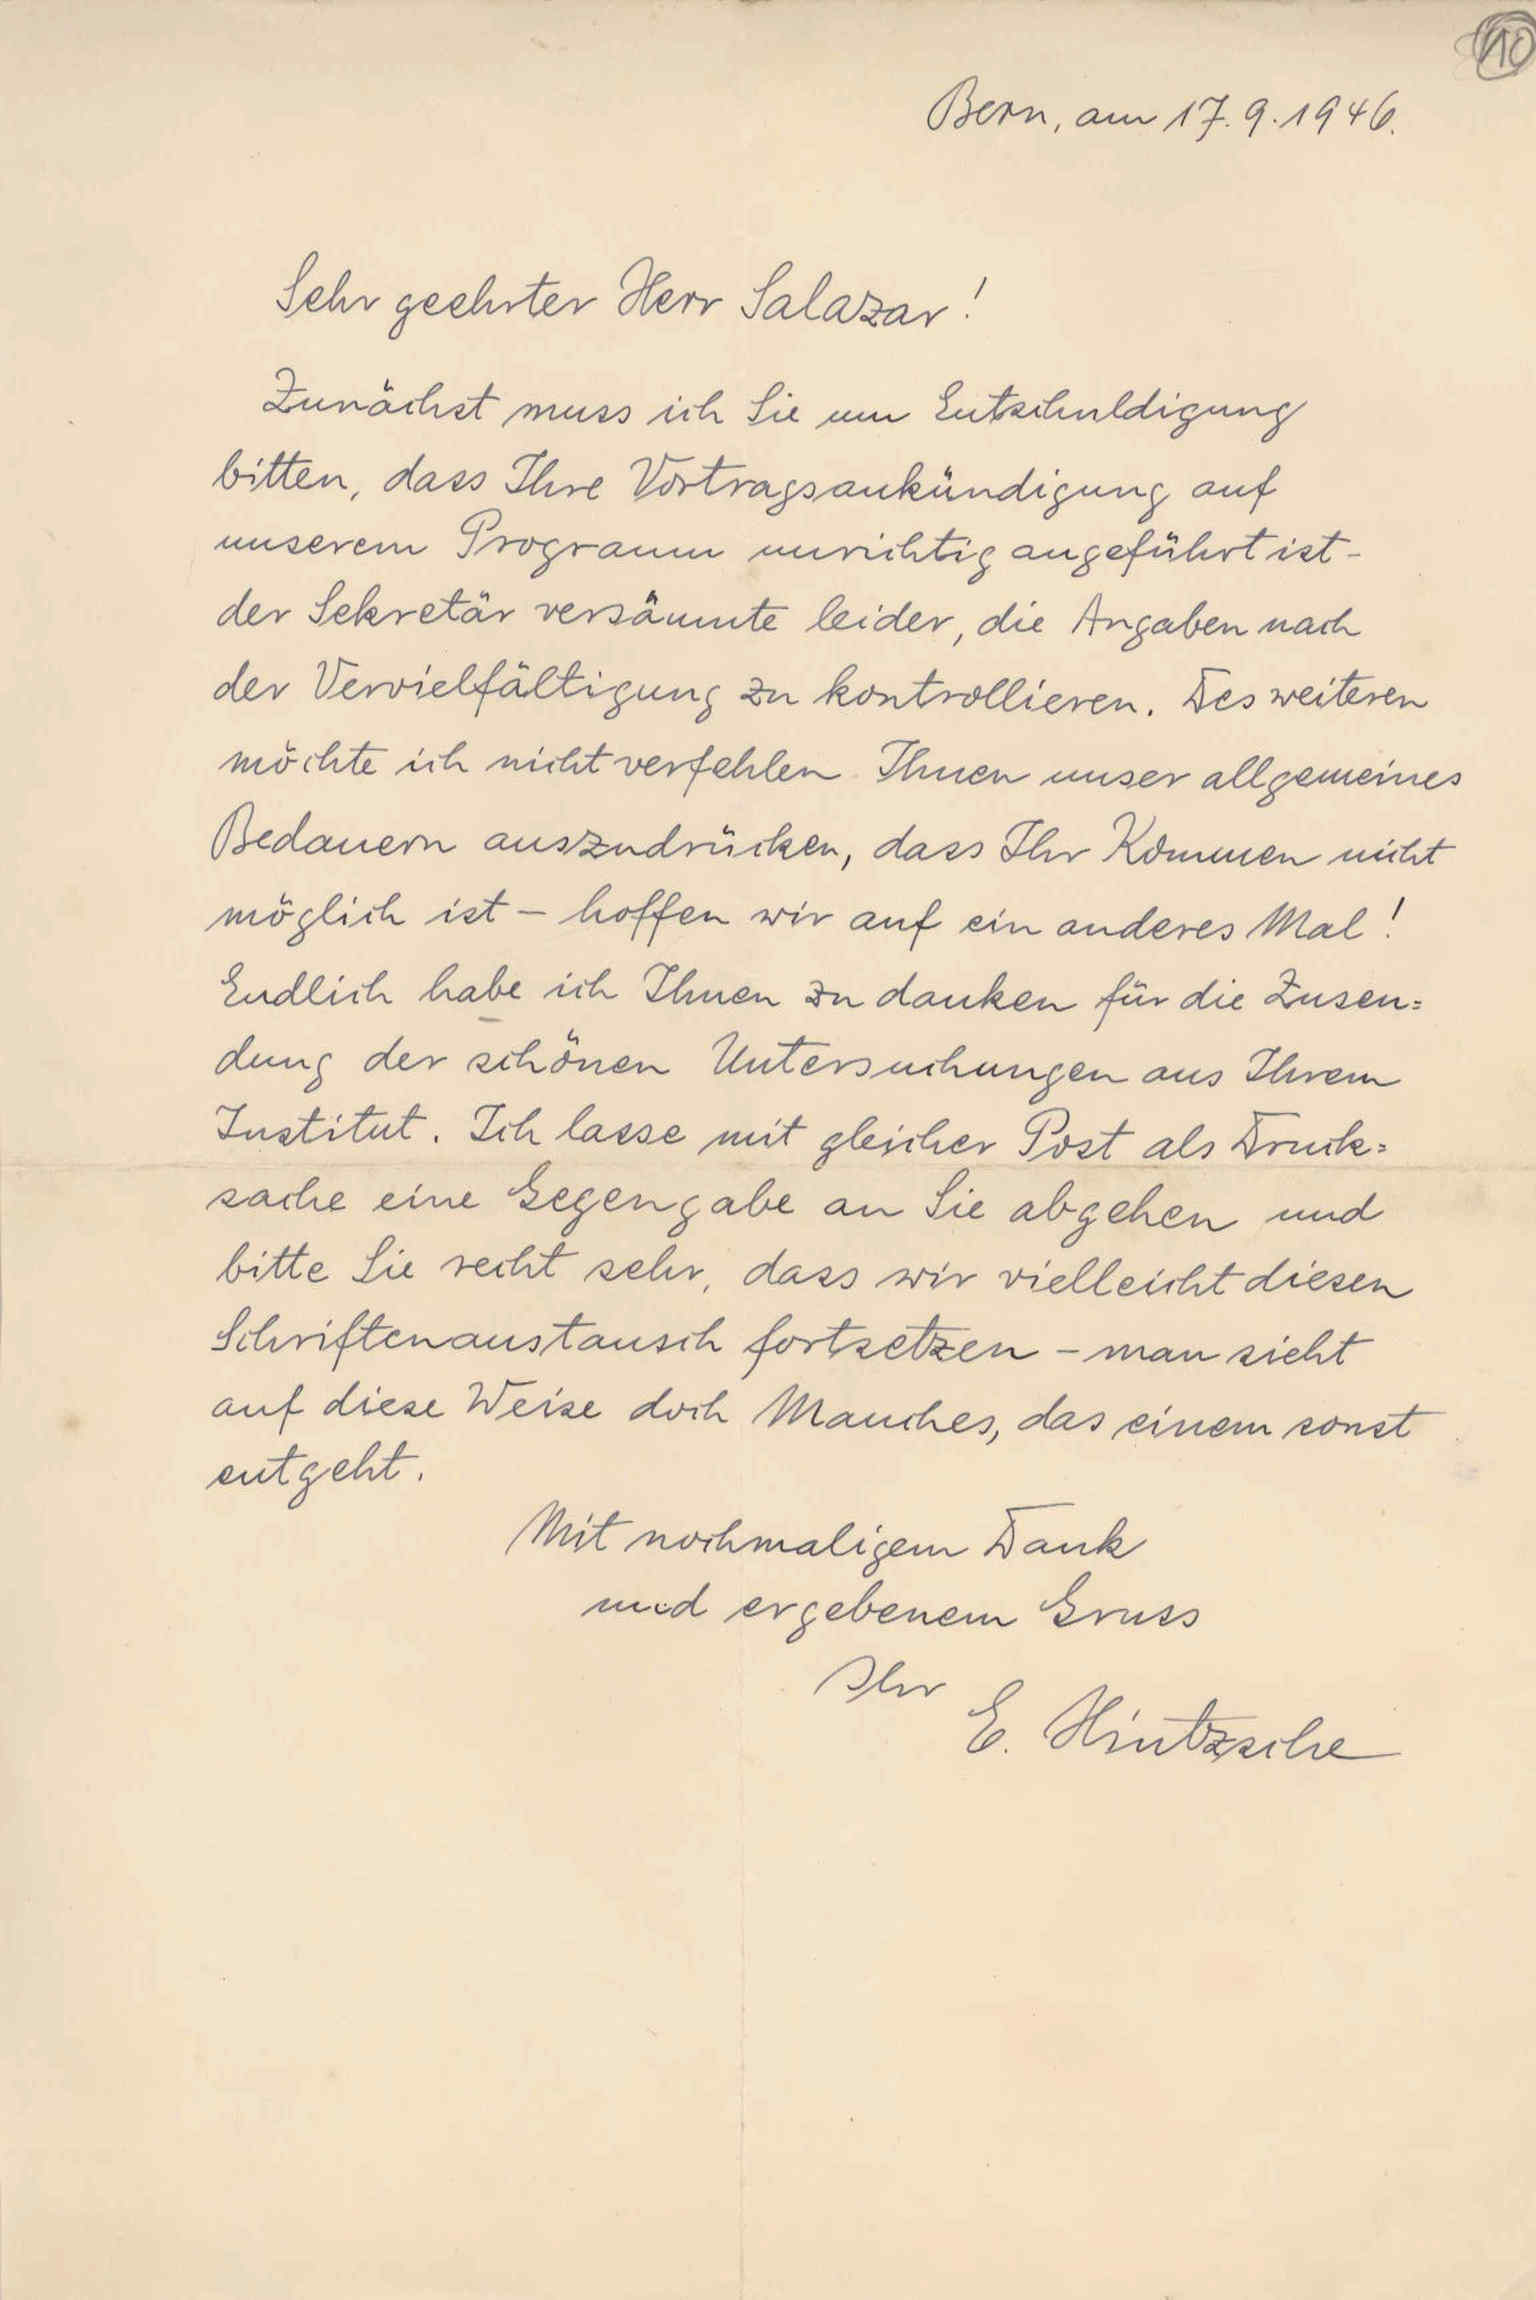 10
Bern, am 17.9.1946.
Sehr geehrter Herr Salazar!
Zunächst muss ich Sie um Entschuldigung
bitten, dass Ihre Vortragsankündigung auf
unserem Programm unrichtig angeführt ist -
der Sekretär versäumte leider, die Angaben nach
der Vervielfältigung zu kontrollieren. Des weiteren
möchte ich nicht verfehlen Ihnen unser allgemeines
Bedauern auszudrücken, dass Ihr Kommen nicht
möglich ist - hoffen wir auf ein anderes Mal!
Endlich habe ich Ihnen zu danken für die Zusen=
dung der schönen Untersuchungen aus Ihrem
Institut. Ich lasse mit gleicher Post als Druck=
sache eine Gegengabe an Sie abgehen und
bitte Sie recht sehr, dass wir vielleicht diesen
Schriftenaustausch fortsetzen - man sieht
auf diese Weise doch Manches, das einem sonst
entgeht.
Mit nochmaligem Dank
und ergebenem Gruss
Ihr
E. Hintzsche